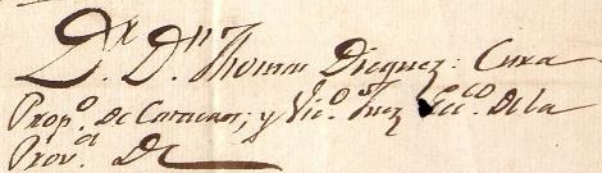 Dr. Dn. Thomas Dieguez: Cura
Propo. De Caracaos; y Vico. Juez Ecco. De la
Prova. De